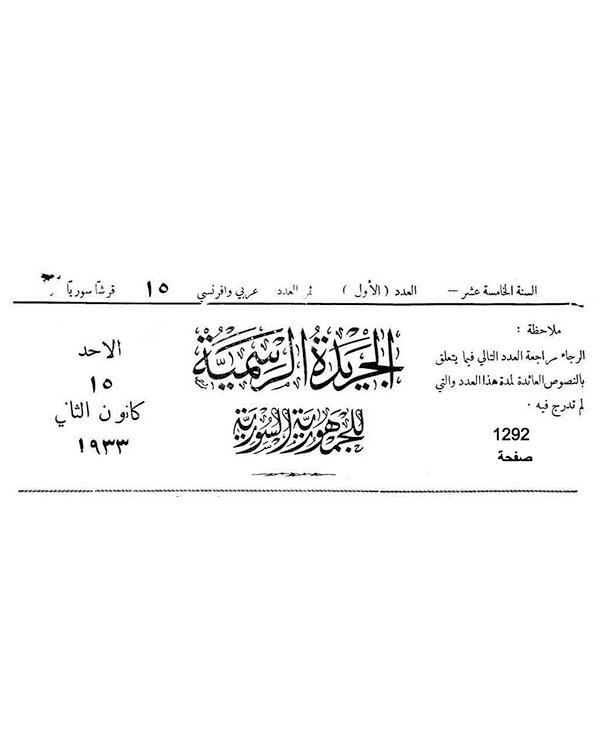 السنة الخامسة عشر — العدد (الأول) ثمن العدد عربي وافرنسي ١٥ قرشا سوريا
ملاحظة :
الرجاء مراجعة العدد التالي فيما يتعلق
بالنصوص العائدة لمدة هذا العدد والتي
لم تدرج فيه .
1292
صفحة
الجريدة الرسمية
للجمهورية السورية
الاحد
١٥
كانون الثاني
١٩٣٣